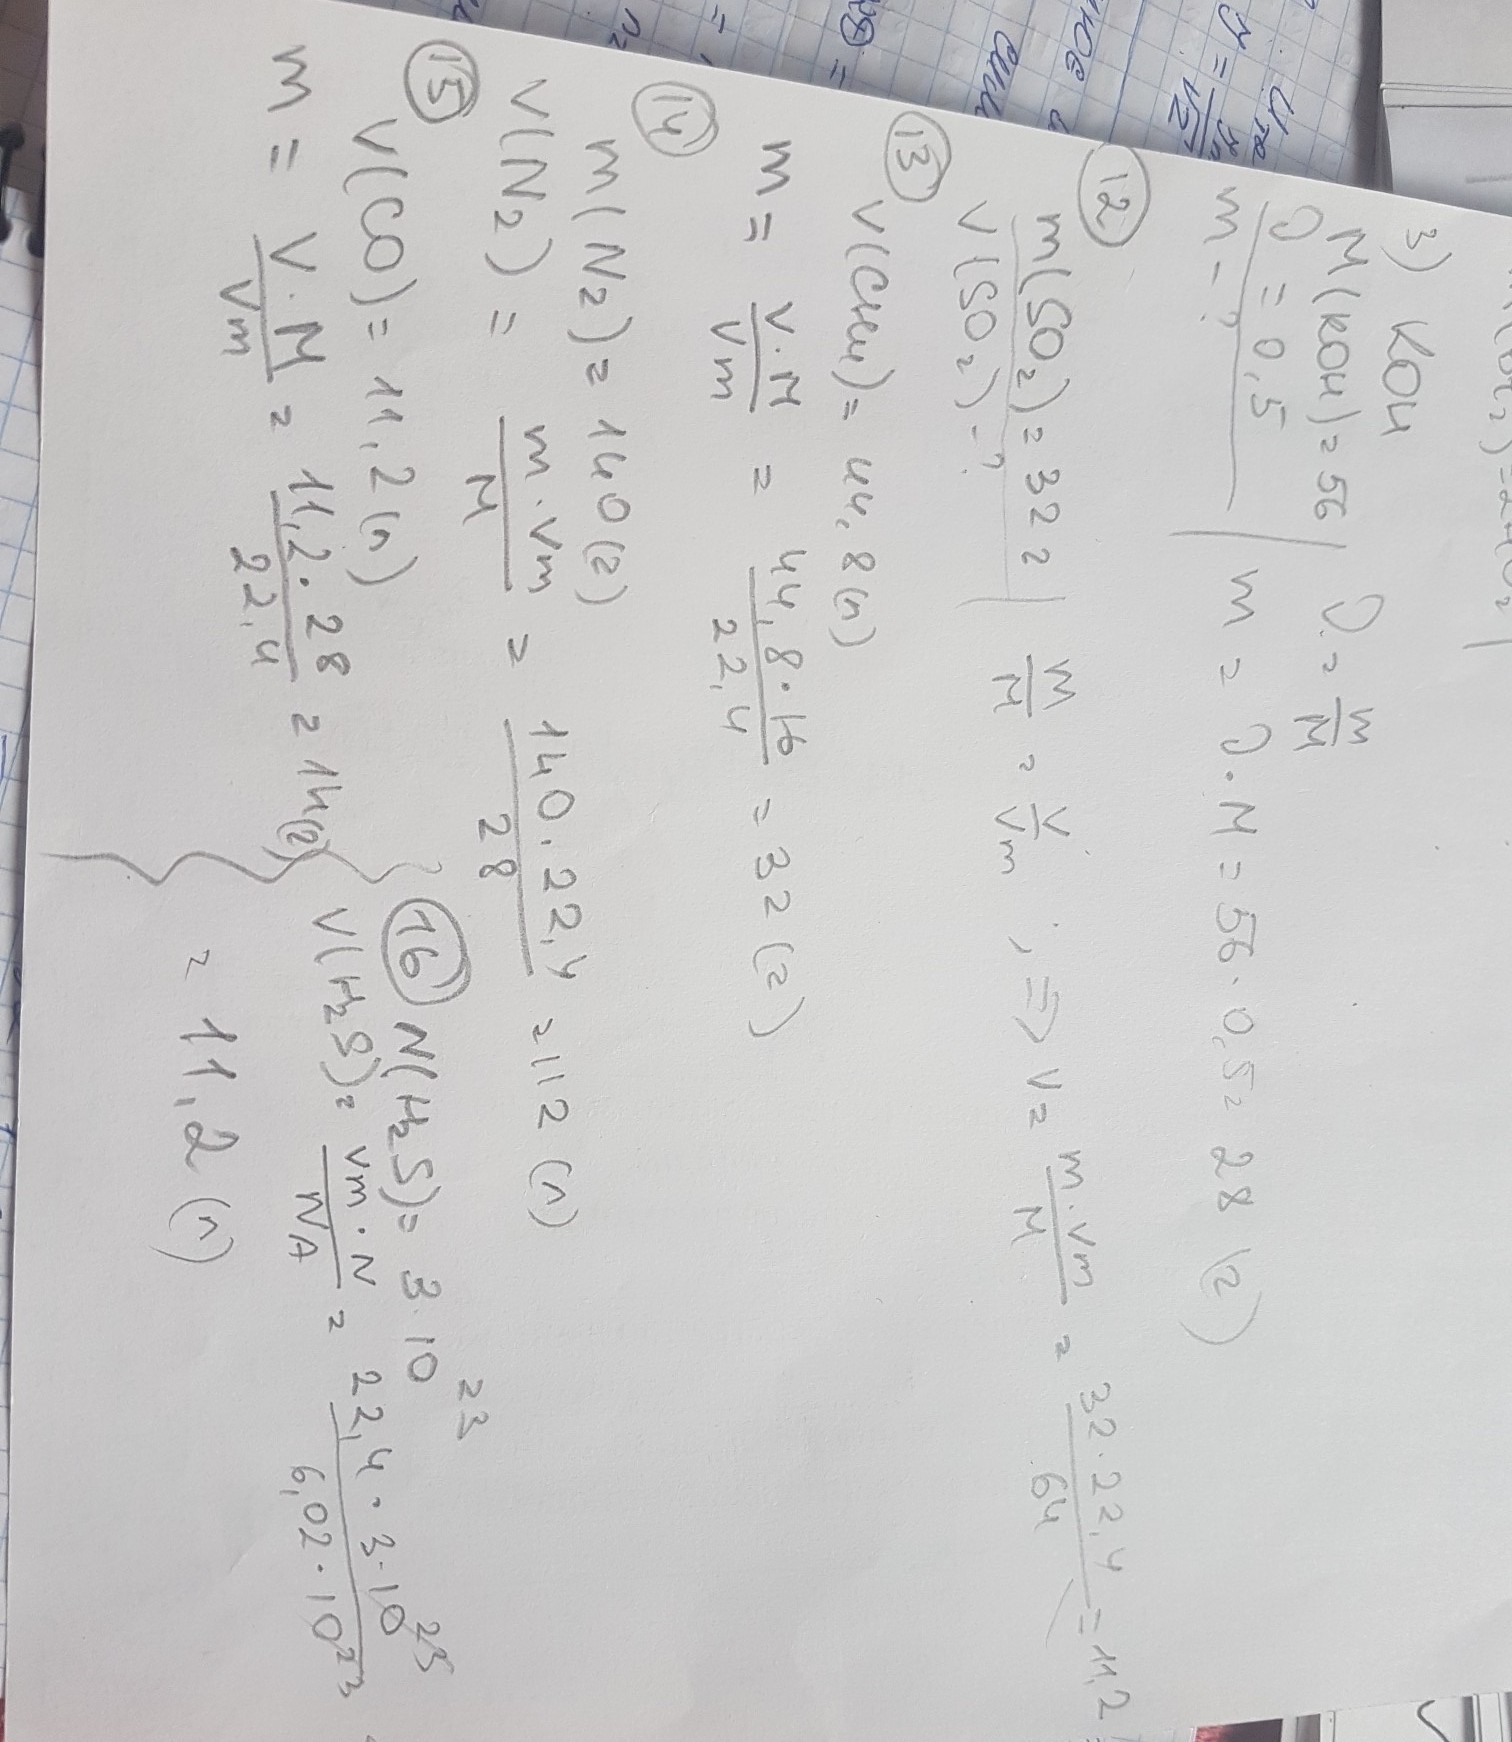 3) KOH
M(KOH) = 56
ν = 0,5
m - ?
ν = m/M
m = ν · M = 56 · 0,5 = 28 (г)
12
m(SO2) = 32 г
V(SO2) - ?
m/M = V/Vm ; ⇒ V = m·Vm/M = 32·22,4/64 = 11,2
13 V(CH4) = 44,8 (л)
m = V·M/Vm = 44,8·16/22,4 = 32 (г)
14 m(N2) = 140 (г)
V(N2) = m·Vm/M = 140·22,4/28 = 112 (л)
15 V(CO) = 11,2 (л)
m = V·M/Vm = 11,2·28/22,4 = 14 (г)
16 N(H2S) = 3·10^23
V(H2S) = Vm·N/NA = 22,4·3·10^23/6,02·10^23
= 11,2 (л)